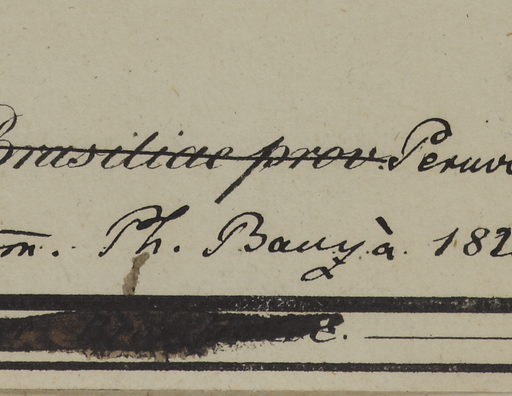 Brasiliae prov. Peruv
m. Ph. Bauzà 182
e.